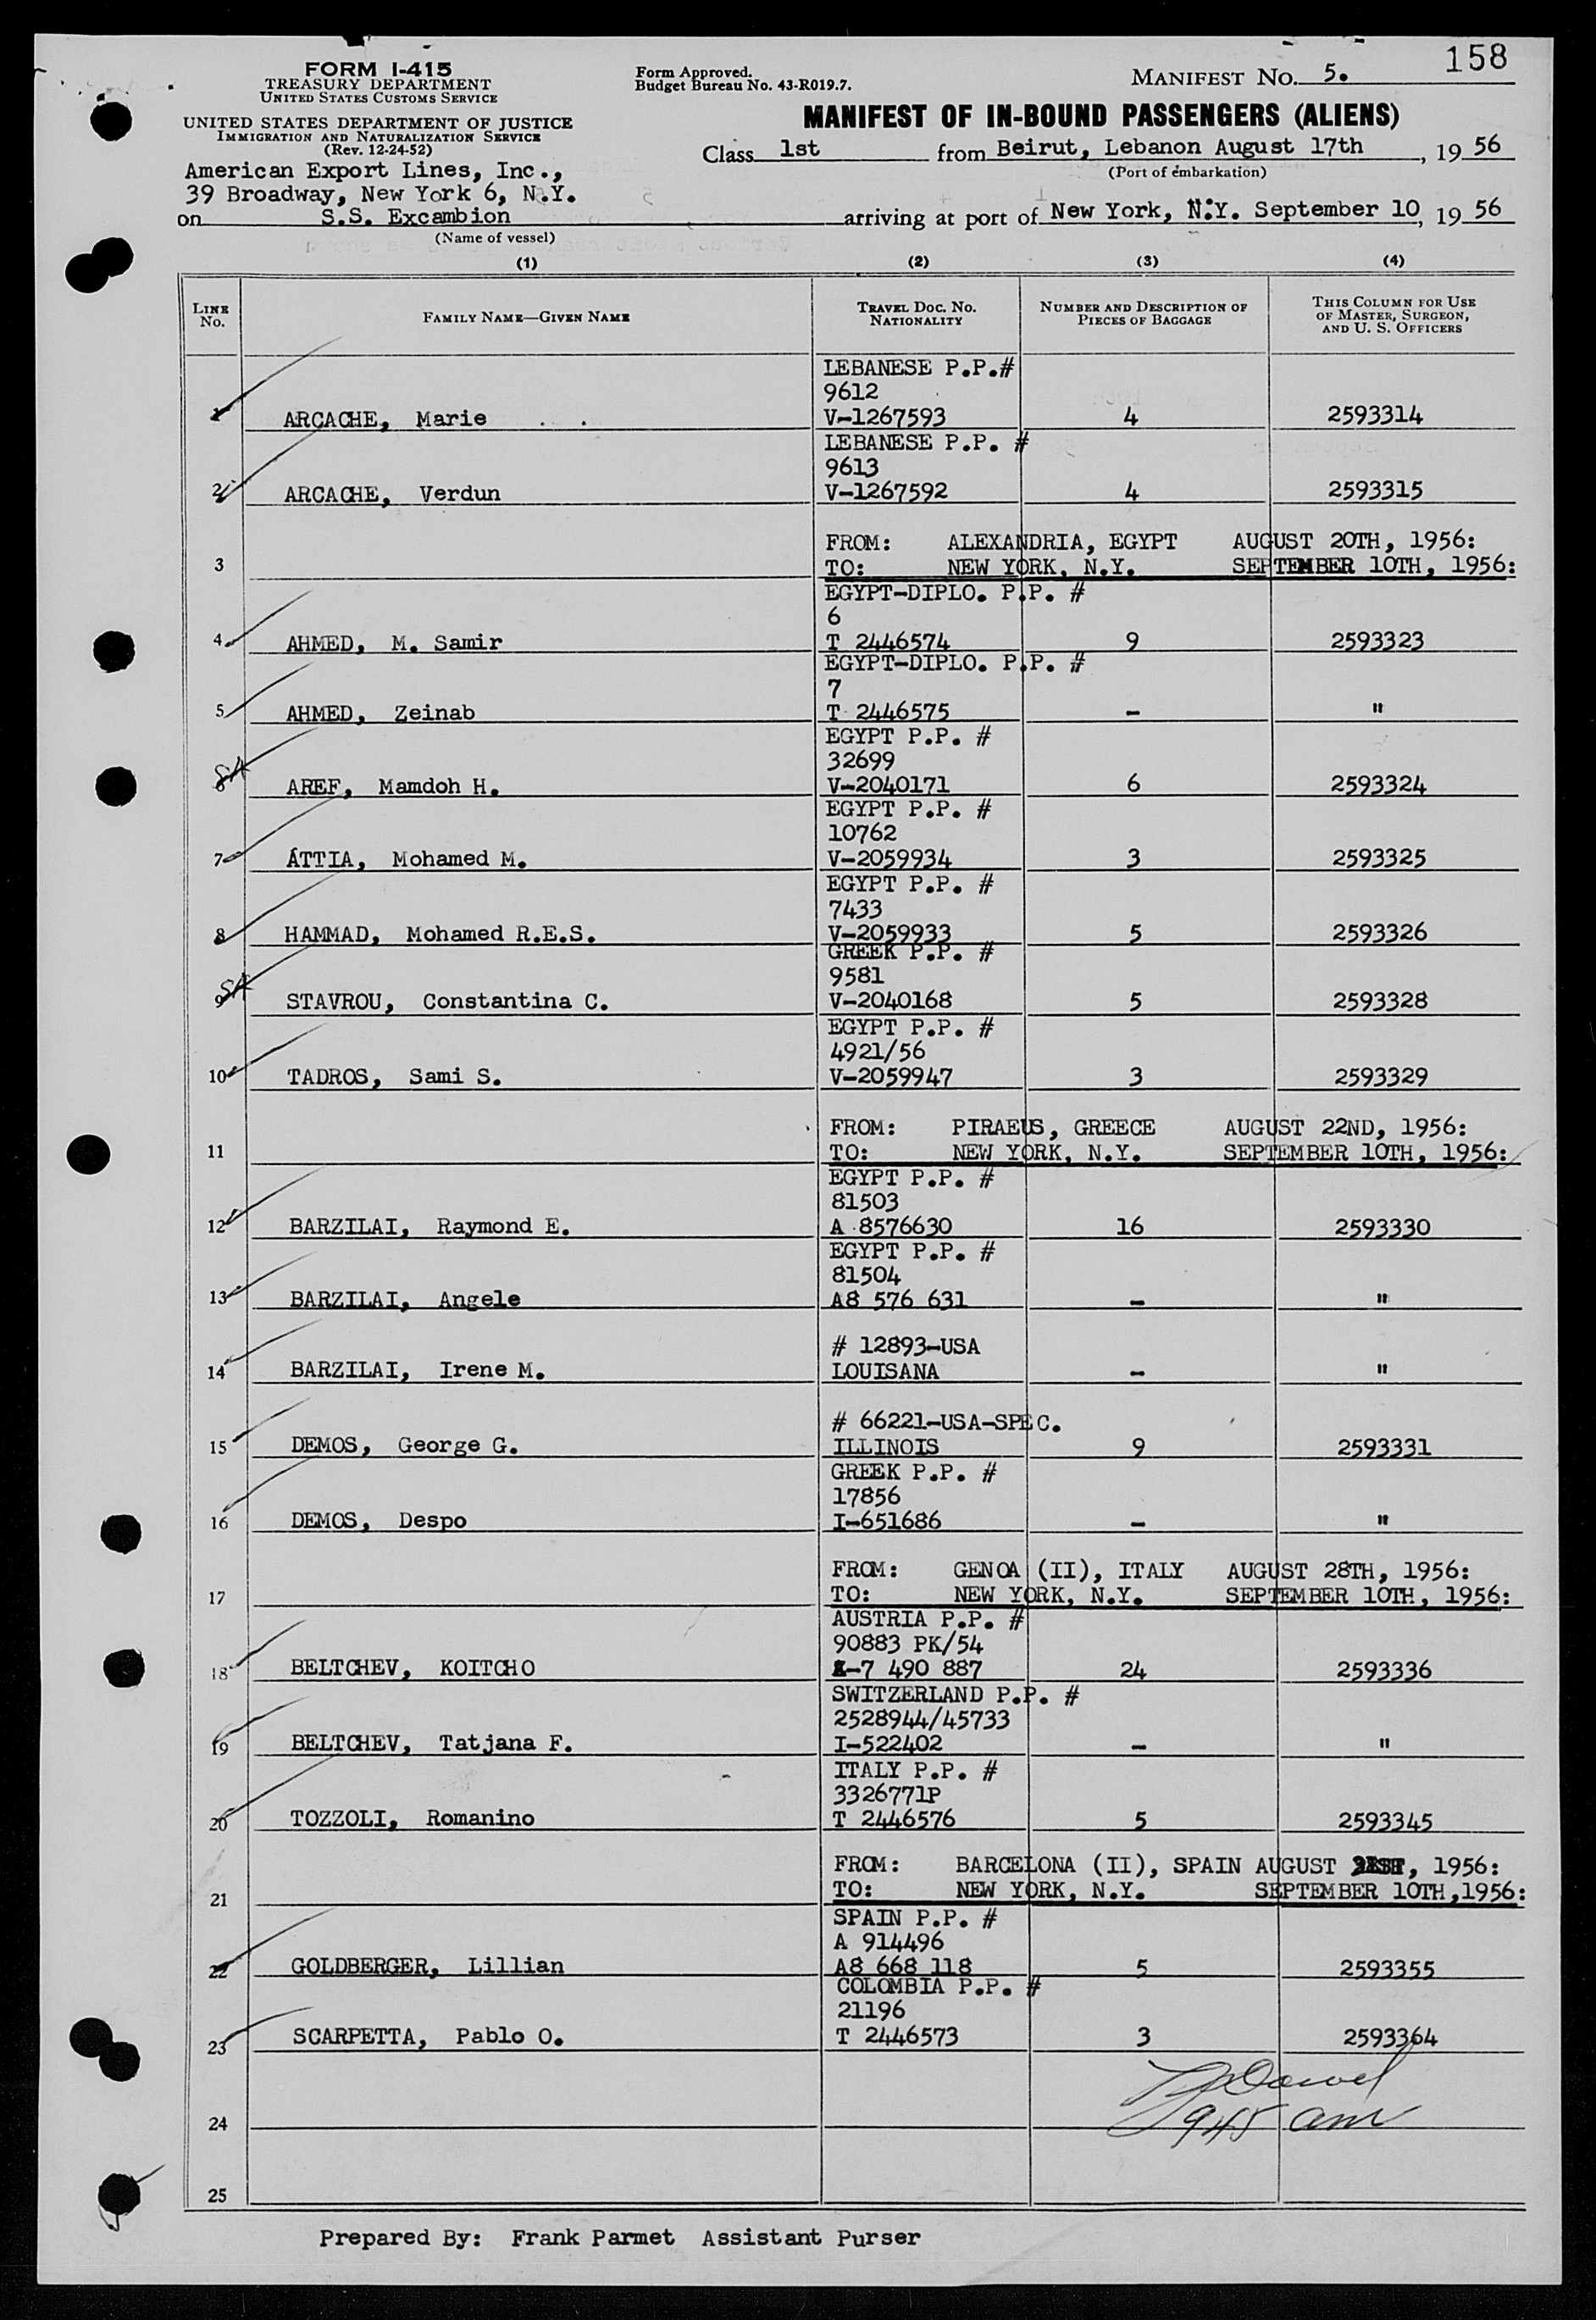 158
FORM I-415
TREASURY DEPARTMENT
UNITED STATES CUSTOMS SERVICE
UNITED STATES DEPARTMENT OF JUSTICE
IMMIGRATION AND NATURALIZATION SERVICE
(Rev. 12-24-52)
Form Approved.
Budget Bureau No. 43-R019.7.
MANIFEST NO. 5.
MANIFEST OF IN-BOUND PASSENGERS (ALIENS)
Class 1st from Beirut, Lebanon August 17th, 19 56
(Port of embarkation)
American Export Lines, Inc.,
39 Broadway, New York 6, N.Y.
on S.S. Excambion arriving at port of New York, N.Y. September 10, 19 56
(Name of vessel)
(1) (2) (3) (4)
LINE No. FAMILY NAME—GIVEN NAME TRAVEL DOC. NO. NATIONALITY NUMBER AND DESCRIPTION OF PIECES OF BAGGAGE THIS COLUMN FOR USE OF MASTER, SURGEON, AND U. S. OFFICERS
LEBANESE P.P.#
9612
1 ARCACHE, Marie V-1267593 4 2593314
LEBANESE P.P. #
9613
2 ARCACHE, Verdun V-1267592 4 2593315
FROM: ALEXANDRIA, EGYPT AUGUST 20TH, 1956:
3 TO: NEW YORK, N.Y. SEPTEMBER 10TH, 1956:
EGYPT-DIPLO. P.P. #
6
4 AHMED, M. Samir T 2446574 9 2593323
EGYPT-DIPLO. P.P. #
7
5 AHMED, Zeinab T 2446575 - "
EGYPT P.P. #
32699
6 AREF, Mamdoh H. V-2040171 6 2593324
EGYPT P.P. #
10762
7 ATTIA, Mohamed M. V-2059934 3 2593325
EGYPT P.P. #
7433
8 HAMMAD, Mohamed R.E.S. V-2059933 5 2593326
GREEK P.P. #
9581
9 STAVROU, Constantina C. V-2040168 5 2593328
EGYPT P.P. #
4921/56
10 TADROS, Sami S. V-2059947 3 2593329
FROM: PIRAEUS, GREECE AUGUST 22ND, 1956:
11 TO: NEW YORK, N.Y. SEPTEMBER 10TH, 1956:
EGYPT P.P. #
81503
12 BARZILAI, Raymond E. A 8576630 16 2593330
EGYPT P.P. #
81504
13 BARZILAI, Angele A8 576 631 - "
# 12893-USA
14 BARZILAI, Irene M. LOUISANA - "
# 66221-USA-SPEC.
15 DEMOS, George G. ILLINOIS 9 2593331
GREEK P.P. #
17856
16 DEMOS, Despo I-651686 - "
FROM: GENOA (II), ITALY AUGUST 28TH, 1956:
17 TO: NEW YORK, N.Y. SEPTEMBER 10TH, 1956:
AUSTRIA P.P. #
90883 PK/54
18 BELTCHEV, KOITCHO -7 490 887 24 2593336
SWITZERLAND P.P. #
2528944/45733
19 BELTCHEV, Tatjana F. I-522402 - "
ITALY P.P. #
3326771P
20 TOZZOLI, Romanino T 2446576 5 2593345
FROM: BARCELONA (II), SPAIN AUGUST , 1956:
21 TO: NEW YORK, N.Y. SEPTEMBER 10TH,1956:
SPAIN P.P. #
A 914496
22 GOLDBERGER, Lillian A8 668 118 5 2593355
COLOMBIA P.P. #
21196
23 SCARPETTA, Pablo O. T 2446573 3 2593364
24 945 am
25
Prepared By: Frank Parmet Assistant Purser